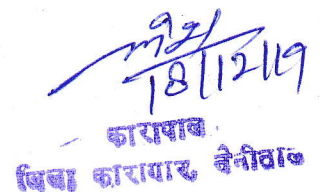 18/12/19
कारापाल
जिला कारागार, नैनीताल